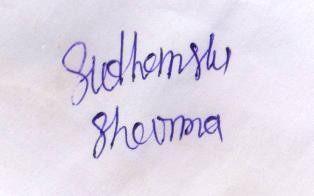 Sudhamshu
Sharma